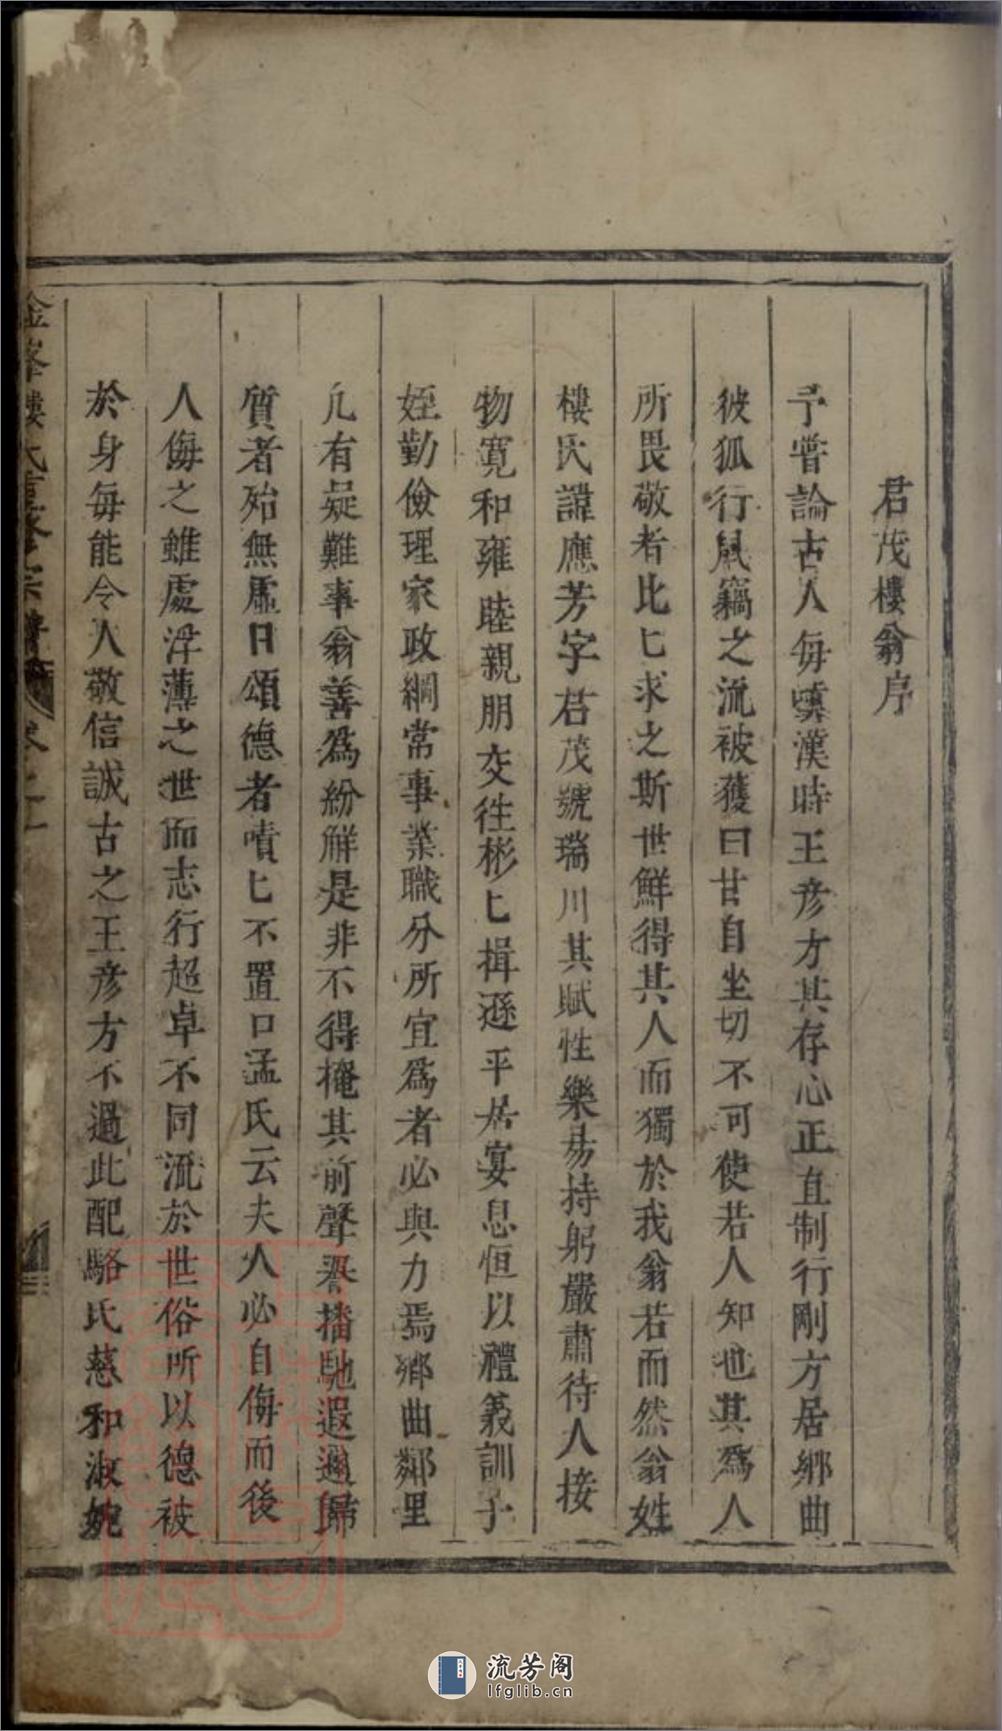 君茂樓翁序
予嘗論古人每嘆漢時王彥方其存心正直制行剛方居鄉曲
彼狐行鼠竊之流被獲曰甘自坐切不可使若人知也其爲人
所畏敬者比匕求之斯世鮮得其人而獨於我翁若而然翁姓
樓氏諱應芳字君茂號瑞川其賦性樂易持躬嚴肅待人接
物寬和雍睦親朋交往彬匕揖遜平居宴息恒以禮義訓子
姪勤儉理家政綱常事業職分所宜爲者必與力焉鄉曲鄰里
凡有疑難事翁善爲紛解是非不得掩其前聲譽播馳遐邇歸
質者殆無虛日頌德者嘖匕不置口孟氏云夫人必自侮而後
人侮之雖處浮薄之世而志行超卓不同流於世俗所以德被
於身每能令人敬信誠古之王彥方不過此配駱氏慈和淑婉
金峯樓氏重修宗譜 卷之二
流芳阁
lfglib.cn